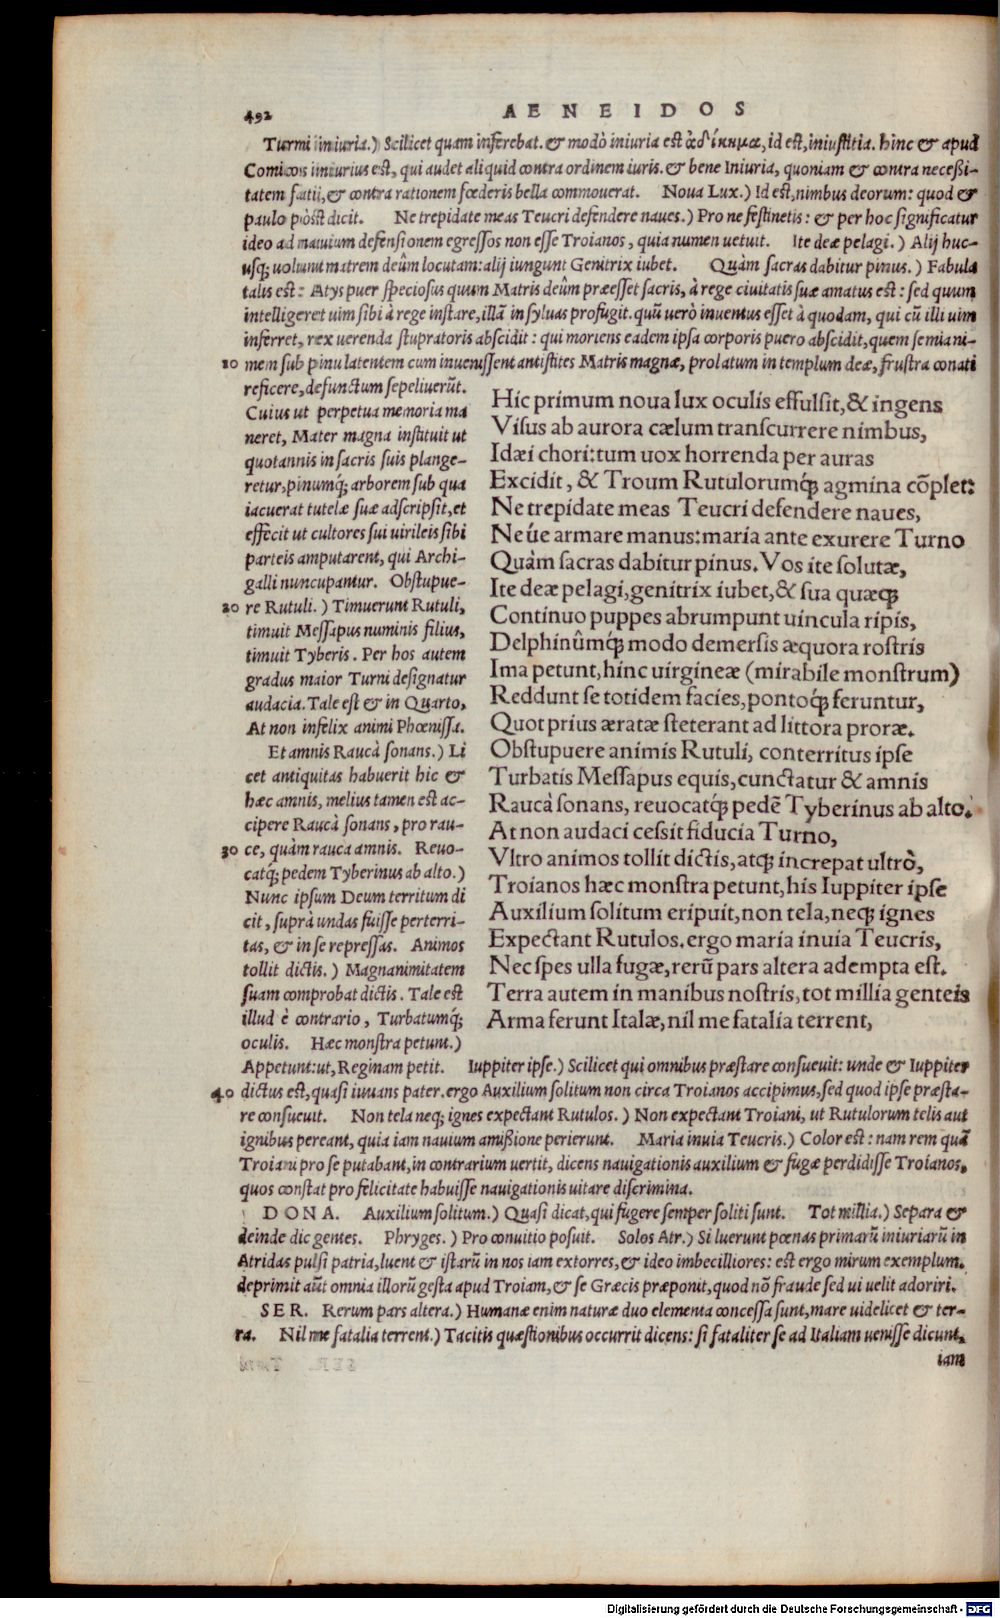 492 AENEIDOS
Turni iniuria.) Scilicet quam inferebat. & modò iniuria est ἀδίκημα, id est, iniustitia. hinc & apud
Comicos iniurius est, qui audet aliquid contra ordinem iuris. & bene Iniuria, quoniam & contra necessi-
tatem fatii, & contra rationem fœderis bella commouerat. Noua Lux.) Id est, nimbus deorum: quod &
paulo pòst dicit. Ne trepidate meas Teucri defendere naues.) Pro ne festinetis: & per hoc significatur
ideo ad nauium defensionem egressos non esse Troianos, quia numen uetuit. Ite deæ pelagi.) Alij huc-
usq; uolunt matrem deûm locutam: alij iungunt Genitrix iubet. Quàm sacras dabitur pinus.) Fabula
talis est: Atys puer speciosus quum Matris deûm præesset sacris, à rege ciuitatis suæ amatus est: sed quum
intelligeret uim sibi à rege instare, illā in syluas profugit. quū uerò inuentus esset à quodam, qui cū illi uim
inferret, rex uerenda stupratoris abscidit: qui moriens eadem ipsa corporis puero abscidit, quem semiani-
10 mem sub pinu latentem cum inuenissent antistites Matris magnæ, prolatum in templum deæ, frustra conati
reficere, defunctum sepeliuerūt.
Cuius ut perpetua memoria ma
neret, Mater magna instituit ut
quotannis in sacris suis plange-
retur, pinumq́; arborem sub qua
iacuerat tutelæ suæ adscripsit, et
effecit ut cultores sui uirileis sibi
parteis amputarent, qui Archi-
galli nuncupantur. Obstupue-
20 re Rutuli.) Timuerunt Rutuli,
timuit Messapus numinis filius,
timuit Tyberis. Per hos autem
gradus maior Turni designatur
audacia. Tale est & in Quarto,
At non infelix animi Phœnissa.
Et amnis Raucà sonans.) Li
cet antiquitas habuerit hic &
hæc amnis, melius tamen est ac-
cipere Raucà sonans, pro rau-
30 ce, quàm rauca amnis. Reuo-
catq́; pedem Tyberinus ab alto.)
Nunc ipsum Deum territum di
cit, suprà undas fuisse perterri-
tas, & in se repressas. Animos
tollit dictis.) Magnanimitatem
suam comprobat dictis. Tale est
illud è contrario, Turbatumq́;
oculis. Hæc monstra petunt.)
Hic primum noua lux oculis effulsit, & ingens
Visus ab aurora cælum transcurrere nimbus,
Idæi chori: tum uox horrenda per auras
Excidit, & Troum Rutulorumq́; agmina cōplet:
Ne trepidate meas Teucri defendere naues,
Neúe armare manus: maria ante exurere Turno
Quàm sacras dabitur pinus. Vos ite solutæ,
Ite deæ pelagi, genitrix iubet, & sua quæq;
Continuo puppes abrumpunt uincula ripis,
Delphinûmq́; modo demersis æquora rostris
Ima petunt, hinc uirgineæ (mirabile monstrum)
Reddunt se totidem facies, pontoq́; feruntur,
Quot prius æratæ steterant ad littora proræ.
Obstupuere animis Rutuli, conterritus ipse
Turbatis Messapus equis, cunctatur & amnis
Raucà sonans, reuocatq́; pedē Tyberinus ab alto.
At non audaci cessit fiducia Turno,
Vltro animos tollit dictis, atq; increpat ultrò,
Troianos hæc monstra petunt, his Iuppiter ipse
Auxilium solitum eripuit, non tela, neq; ignes
Expectant Rutulos. ergo maria inuia Teucris,
Nec spes ulla fugæ, rerū pars altera adempta est.
Terra autem in manibus nostris, tot millia genteis
Arma ferunt Italæ, nil me fatalia terrent,
Appetunt: ut, Reginam petit. Iuppiter ipse.) Scilicet qui omnibus præstare consueuit: unde & Iuppiter
40 dictus est, quasi iuuans pater. ergo Auxilium solitum non circa Troianos accipimus, sed quod ipse præsta-
re consueuit. Non tela neq; ignes expectant Rutulos.) Non expectant Troiani, ut Rutulorum telis aut
ignibus pereant, quia iam nauium amissione perierunt. Maria inuia Teucris.) Color est: nam rem quā
Troiani pro se putabant, in contrarium uertit, dicens nauigationis auxilium & fugæ perdidisse Troianos,
quos constat pro felicitate habuisse nauigationis uitare discrimina.
DONA. Auxilium solitum.) Quasi dicat, qui fugere semper soliti sunt. Tot millia.) Separa &
deinde dic gentes. Phryges.) Pro conuitio posuit. Solos Atr.) Si luerunt pœnas primarū iniuriarū in
Atridas pulsi patria, luent & istarū in nos iam extorres, & ideo imbecilliores: est ergo mirum exemplum.
deprimit aūt omnia illorū gesta apud Troiam, & se Græcis præponit, quod nō fraude sed ui uelit adoriri.
SER. Rerum pars altera.) Humanæ enim naturæ duo elementa concessa sunt, mare uidelicet & ter-
ra. Nil me fatalia terrent.) Tacitis quæstionibus occurrit dicens: si fataliter se ad Italiam uenisse dicunt,
iam
Digitalisierung gefördert durch die Deutsche Forschungsgemeinschaft - DFG